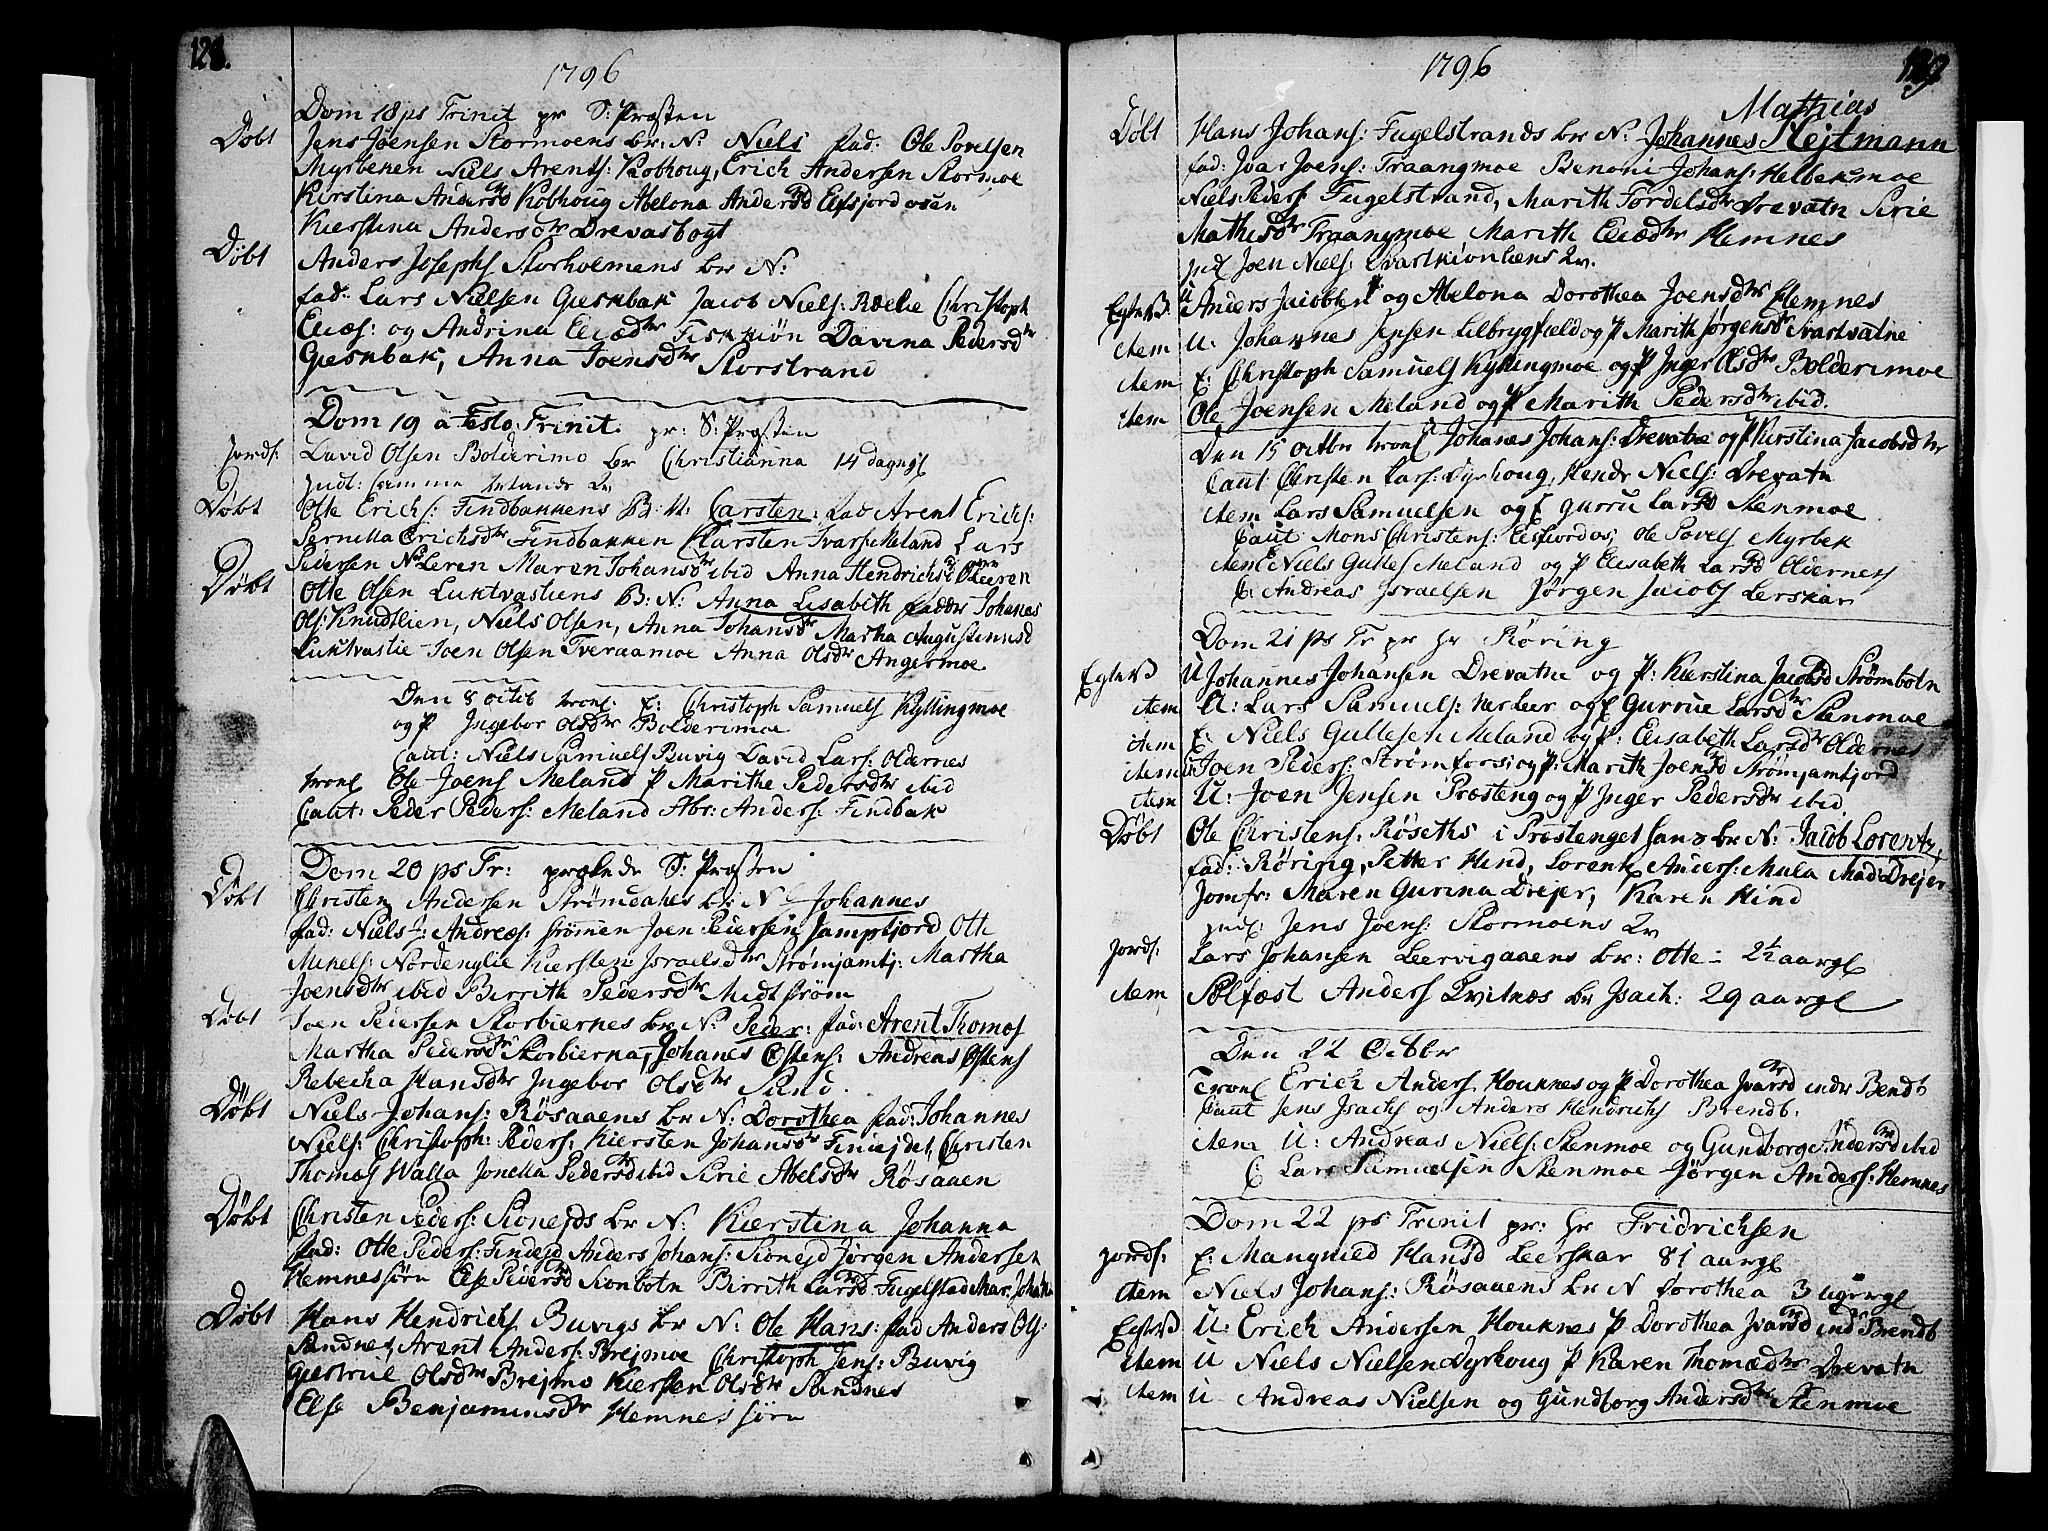 128.
1796
Dom 18 ps Trinit pr S: Præsten
Døbt Jens Jøensen Stormoens br: N: Niels fad: Ole Povelsen
Myrbeken Niels Arents: Kobhoug, Erich Andersen Stormoe
Kirstina Andersdr Kobhoug Abelona Andersdr Elfsjordosen
Kierstina Andersdr Drevasbogt
Døbt Anders Josephs Storholmens br N:
fad: Lars Nielsen Giesbak Jacob Niels: Rælie Christoph
Eliæs: og Andrina Eliædtr Davina Pedersdtr
Giesbak, Anna Joensdtr Storstrand
Dom 19 a Festo Trinit. pr: S: Præsten
Jords: David Olsen Bolderimo br Christianna 14 dag
Døbt Otte Erichs: Findbakkens B: N: Carsten: fad Arent Erichs:
Pernella Erichsdtr Findbakken Carsten Ivars: Meland Lars
Pedersen Leren Maren Johansdtr ibid Anna Hendrichsd Leeren
Døbt Otte Olsen Luktvasliens B: N: Anna Lisabeth fadder Johanes
Ols: Knudtlien, Niels Olsen, Anna Johansdr Martha Augustinusd
Luktvaslie Joen Olsen Tveraamoe Anna Olsdtr Angermoe
Den 8 octob trol E: Christoph Samuels Kyllingmoe
og P Ingebor Olsdtr Bolderimoe
Caut: Niels Samuels Buvig David Lars: Oldernes
trol Ole Joens Meland P Marithe Pedersdtr ibid
Caut: Peder Peders: Meland Abr: Anders: Findbak
Dom 20 ps Tr: prækede S: Præsten
Døbt Christen Andersen Strømdahls br: N: Johannes
fad: Niels J: Andreæs: strømen Joen Pedersen Jamtfjord Otte
Mikels: Nordenglie Kiersten Israelsdtr Strømjamtj: Martha
Joensdtr ibid Birrith Pedersdtr Midtstrøm
Døbt Joen Pedersen Storbiernes br N: Peder: fad: Arent Thomæs
Martha Pedersdtr Storbierna, Johanes Østens: Andreas Østens
Rebecka Hansdtr Ingebor Olsdtr Sund
Døbt Niels Johans: Røsaaens br N: Dorothea fad: Johannes
Niels: Christoph: Peders: Kiersten Johansdtr Finiejdet, Christen
Thomæs Walla Jonella Pedersd ibid Sirie Abelsdtr Røsaaen
Døbt Christen Peders: Sionejds br N: Kierstina Johanna
fad: Otte Peders: Findejd Anders Johans: Sionejd Jørgen Andersen
Hemnessørn Else Pedersd Sionbotn Birrith Larsd Fugelstad Mar: Johans
Døbt Hans Hendrichs Buvigs br N: Ole Hans: fad Anders Ols:
Sandnes, Arent Anders: Brejmoe Christoph Jens: Buvig
Giertrue Olsdtr Brejmo Kiersten Olsdtr Sandnes
Else Benjaminsdr Hemnessørn
129
1796
Mathias
Døbt Hans Johans: Fugelstrands br N: Johannes Slejtmann
fad: Ivar Joens: Traangmoe Benoni Johans: Helbekmoe
Niels Peders Fugelstrand, Marith Tordelsdtr Drevatn Sirie
Mathisdtr Traangmoe Marith Eliædtr Hemnes
Ind Joen Niels:
Egtev: U Anders Jacobsen og Abelona Dorothea Joensdtr Hemnes
item U: Johannes Jensen Lilbrygfieldog P Marith Jørgensdr Svartvatne
item E: Christoph Samuels Kyllingmoe og P Inger Olsdtr Bolderimoe
item Ole Joensen Meland og P Marith Pedersdtr ibid.
Den 15 octbr trol Johanes Johans: Drevatne og P Kirstina Jacobsdtr
Caut Christen Lars: Dyrhoug, Hendr Niels: Drevatn
item Lars Samuelsen og P Gurru Larsd Stenmoe
Caut Mons Christens: Elsfiordos, Ole Povels Myrbek
item E Niels Gulles Meland og P Elisabeth Larsd Oldernes
C: Andreas Israelsen Jørgen Jacobs Lerskar
Dom 21 ps Tr pr hr Røring
Egtev U Johannes Johansen Drevatne og P: Kierstina Jacobsd Strømbotn
item U: Lars Samuels: og P Gurrue Larsdtr Stenmoe
item E. Niels Gullesen Meland og P: Elisabeth Larsdr Oldernes
item U Joen Peders: Strømforsiog P: Marith Joensd Strømjamtfjord
item U: Joen Jensen Præsteng og P Inger Pedersdtr ibid
Døbt Ole Christens: Røseths i Præstenget hans br N: Jacob Lorentz,
fad: Røring, Petter Hind, Lorentz Anders: Mula Mad: Drejer
Jomfr: Maren Gurina Drejer, Karen Hind
Ind: Jens Joens: Stormoens 2v
Jords: Lars Johansen Leervigaaens br: Otte - 2½ aargl
item Sølfæst Anders Qvitnæs br Isach: 29 aargl
Den 22 Octobr
Trol Erich Anders Houknes og P Dorothea Ivarsd indr Bendt
Caut Jens Isachs og Anders Hendrichs Brendt.
item U: Andreas Niels: Stenmoe og Gundborg Andersd ibid
C: Lars Samuelsen Stenmoe Jørgen Anders: Hemnes
Dom 22 ps Trinit pr: hr Fridrichsen
Jords: E: Mangnild Hansd Leerskar 81 aargl
item Niels Johans: Røsaaens br N Dorothea 3 ugergl
Egtev U: Erich Andersen Houknes P Dorothea Ivarsd ind Brendt
item U Niels Nielsen Dyrhoug P Karen Thomædtr Drevatn
item U Andreas Nielsen og Gundborg Andersdtr Stenmoe